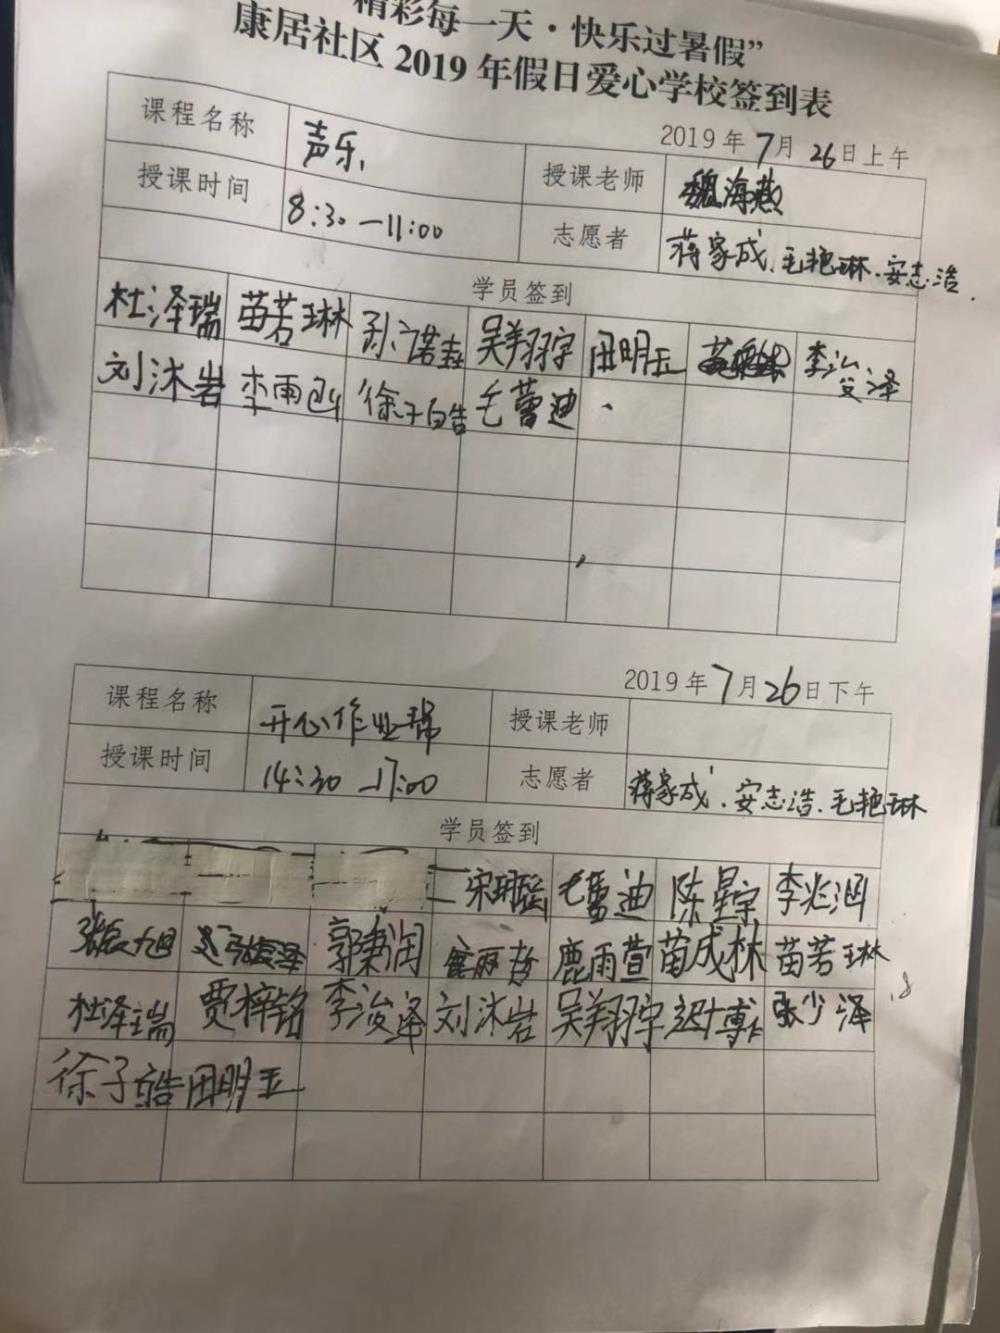 精彩每一天·快乐过暑假”
康居社区 2019 年假日爱心学校签到表
2019 年 7 月 26 日上午
课程名称 声乐 授课老师 魏海燕
授课时间 8:30—11:00 志愿者 蒋家成、毛艳琳、安志浩.
学员签到
杜泽瑞 苗若琳 孙诺垚 吴翔宇 田明玉 李浚泽
刘沐岩 李雨函 徐子皓 毛蕾迪
2019 年 7 月 26 日下午
课程名称 开心作业 授课老师
授课时间 14:30—17:00 志愿者 蒋家成、安志浩、毛艳琳
学员签到
宋玥瑶 毛蕾迪 陈星宗 李兆涵
张宸旭 张宸泽 郭秉润 鹿雨萱 苗成林 苗若琳
杜泽瑞 贾梓铭 李浚泽 刘沐岩 吴翔宇 迟博 张少泽
徐子皓 田明玉